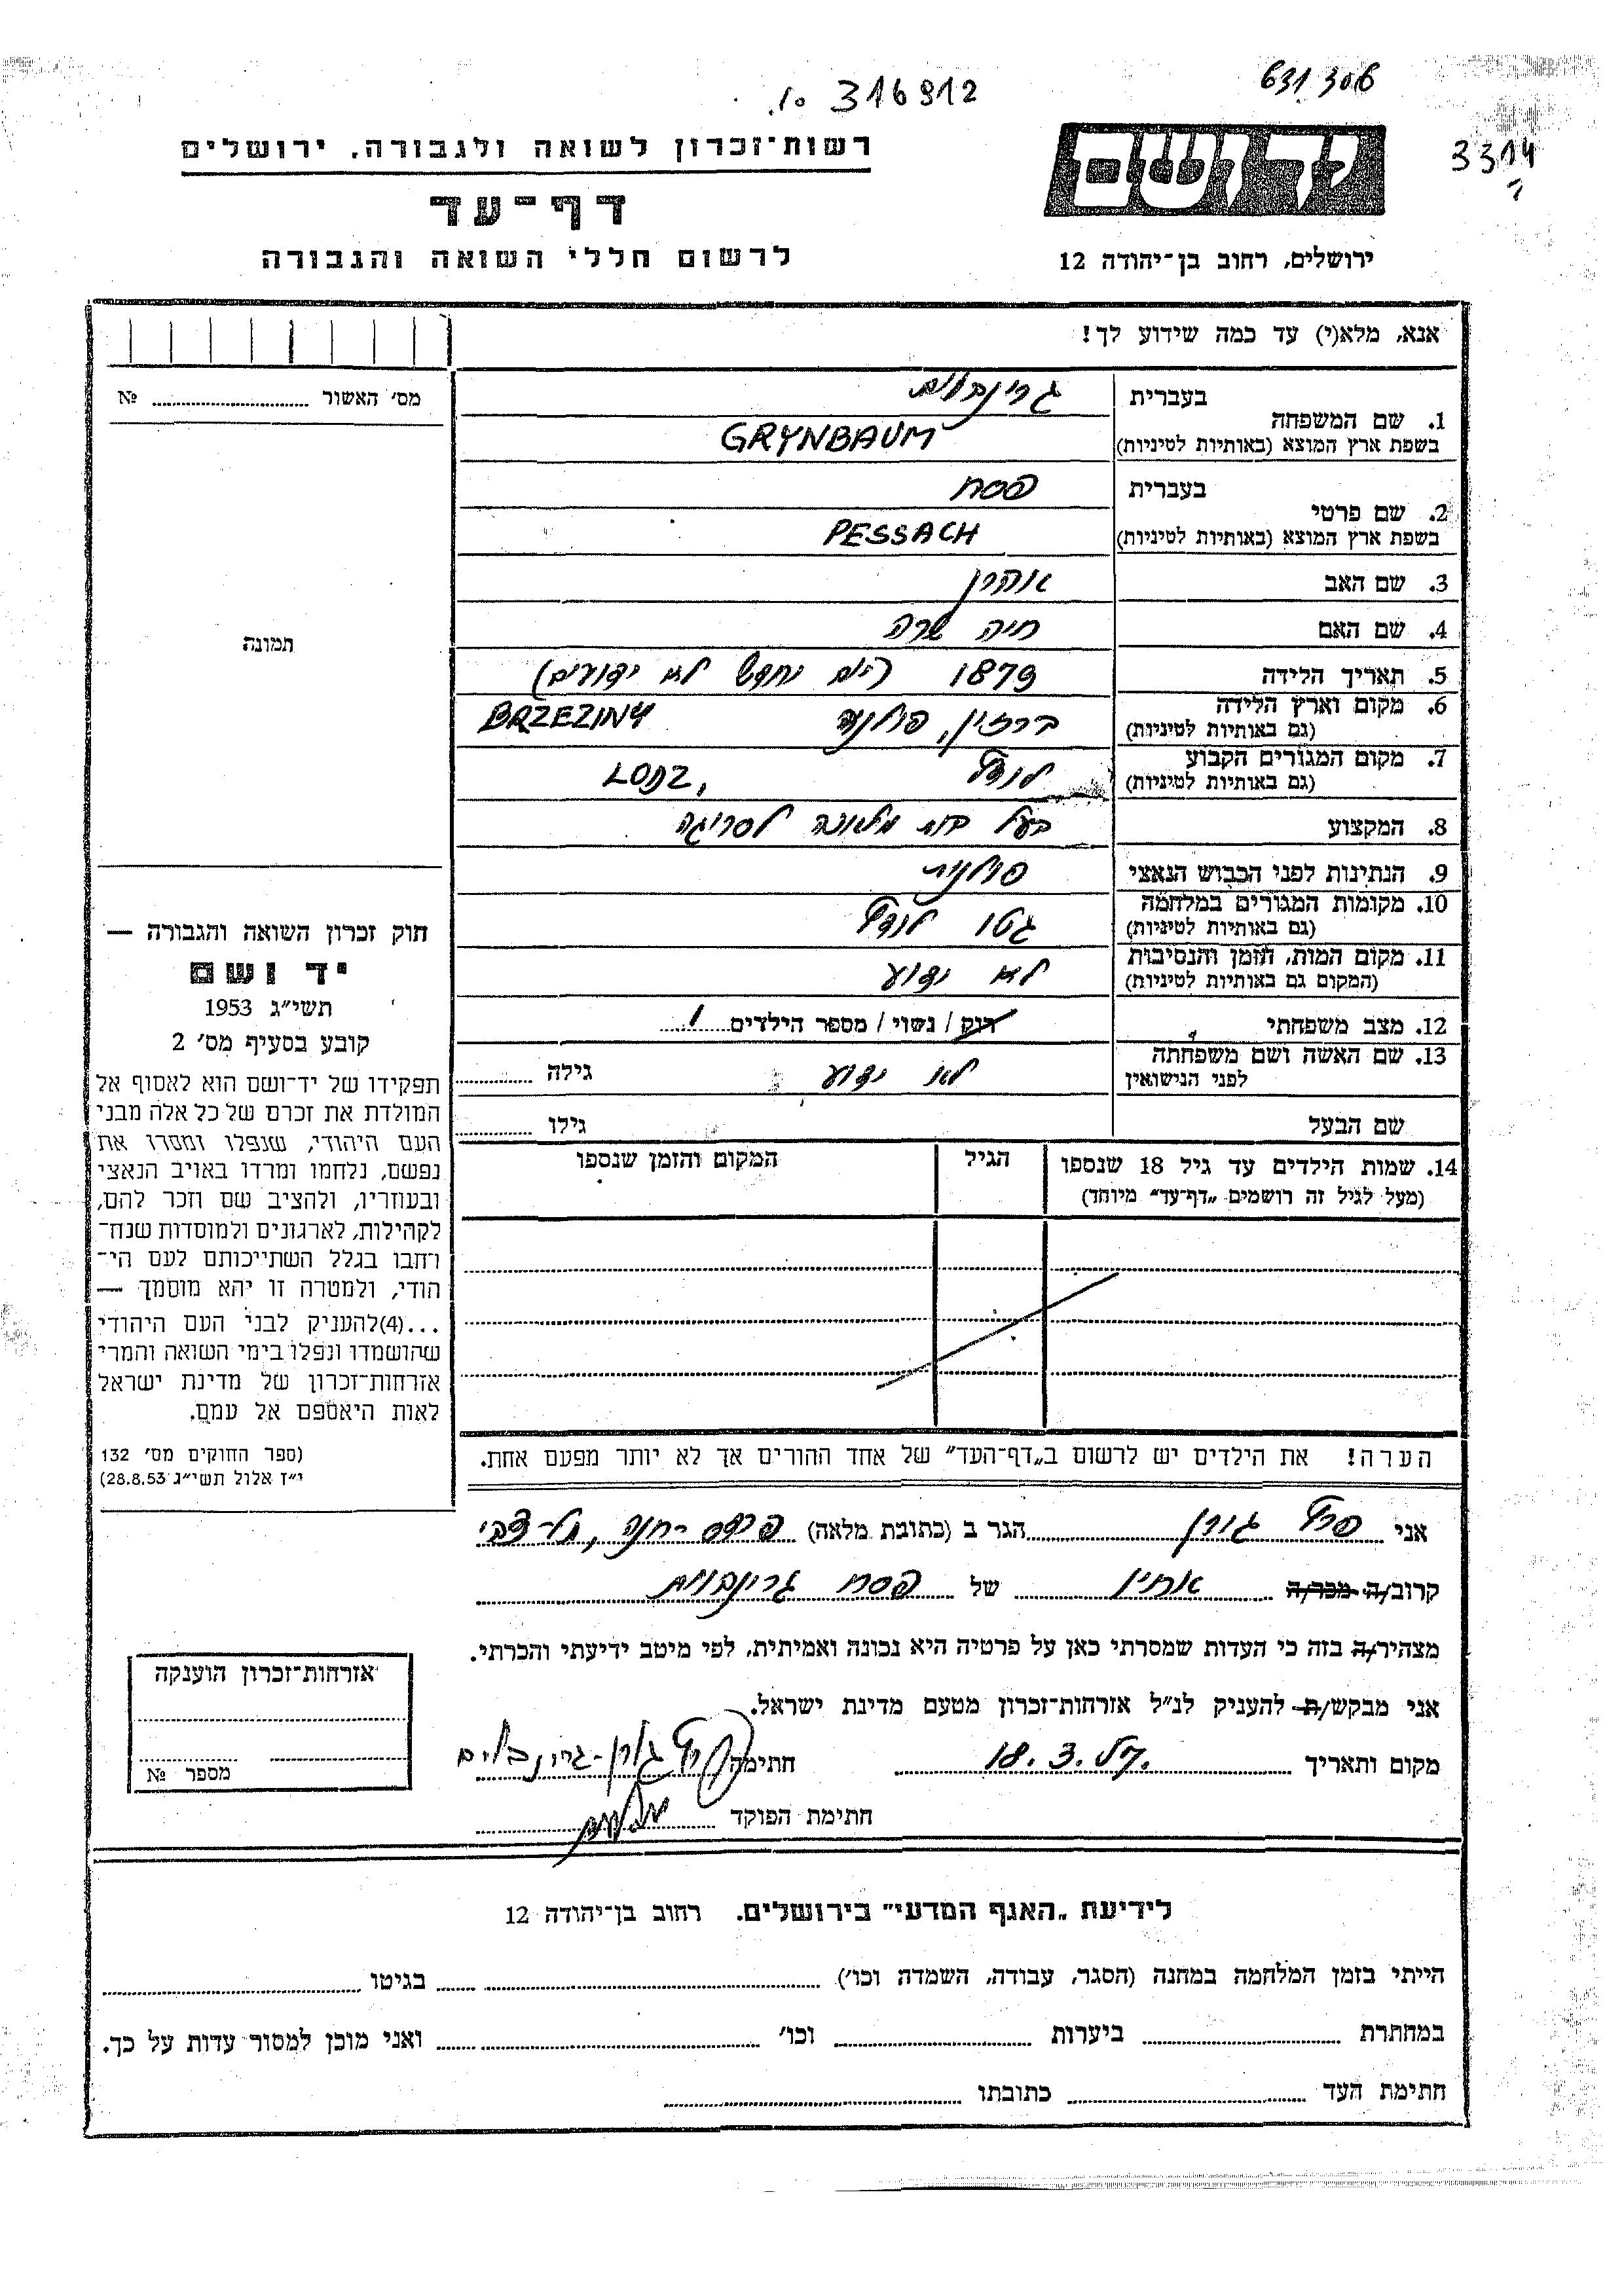 631.306
10 316912
3314
יד ושם
ירושלים, רחוב בן־יהודה 12
רשות־זכרון לשואה ולגבורה, ירושלים
דף־עד
לרשום חללי השואה והגבורה
אנא, מלא(י) עד כמה שידוע לך!
1. שם המשפחה בעברית גרינבוים
בשפת ארץ המוצא (באותיות לטיניות) GRYNBAUM
2. שם פרטי בעברית פסח
בשפת ארץ המוצא (באותיות לטיניות) PESSACH
3. שם האב אהרן
4. שם האם חיה שרה
5. תאריך הלידה 1879 (יום וחדש לא ידועים)
6. מקום וארץ הלידה ברזין, פולניה BRZEZINY
(גם באותיות לטיניות)
7. מקום המגורים הקבוע לודז', LODZ
(גם באותיות לטיניות)
8. המקצוע בעל בית מלאכה לסריגה
9. הנתינות לפני הכבוש הנאצי פולנית
10. מקומות המגורים במלחמה גטו לודז'
(גם באותיות לטיניות)
11. מקום המות, הזמן והנסיבות לא ידוע
(המקום גם באותיות לטיניות)
12. מצב משפחתי רוק / נשוי / מספר הילדים 1
13. שם האשה ושם משפחתה לא ידוע גילה
לפני הנישואין
שם הבעל גילו
14. שמות הילדים עד גיל 18 שנספו הגיל המקום והזמן שנספו
(מעל לגיל זה רושמים „דף־עד” מיוחד)
הערה! את הילדים יש לרשום ב„דף־העד” של אחד ההורים אך לא יותר מפעם אחת.
מס' האשור №
תמונה
חוק זכרון השואה והגבורה —
יד ושם
תשי״ג 1953
קובע בסעיף מס׳ 2
תפקידו של יד־ושם הוא לאסוף אל
המולדת את זכרם של כל אלה מבני
העם היהודי, שנפלו ומסרו את
נפשם, נלחמו ומרדו באויב הנאצי
ובעוזריו, ולהציב שם וזכר להם,
לקהילות, לארגונים ולמוסדות שנח־
רחבו בגלל השתייכותם לעם הי־
הודי, ולמטרה זו יהא מוסמך —
...(4)להעניק לבני העם היהודי
שהושמדו ונפלו בימי השואה והמרי
אזרחות־זכרון של מדינת ישראל
לאות היאספם אל עמם.
(ספר החוקים מס׳ 132
י״ז אלול תשי״ג 28.8.53)
אני גורן הגר ב (כתובת מלאה) פרדס-חנה, תל-צבי
קרוב/ה מכר/ה אחיין של פסח גרינבוים
מצהיר/ה בזה כי העדות שמסרתי כאן על פרטיה היא נכונה ואמיתית, לפי מיטב ידיעתי והכרתי.
אני מבקש/ת להעניק לנ״ל אזרחות־זכרון מטעם מדינת ישראל.
מקום ותאריך 18.3. חתימה גורן-גרינבוים
חתימת הפוקד
אזרחות־זכרון הוענקה
מספר №
לידיעת „האגף המדעי” בירושלים. רחוב בן־יהודה 12
הייתי בזמן המלחמה במחנה (הסגר, עבודה, השמדה וכו׳) בגיטו
במחתרת ביערות וכו׳ ואני מוכן למסור עדות על כך.
חתימת העד כתובתו